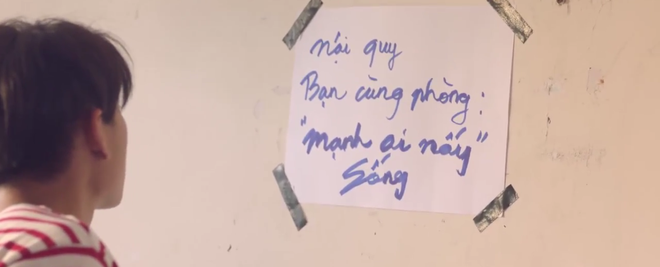 nội quy
Bạn cùng phòng:
"mạnh ai nấy"
Sống